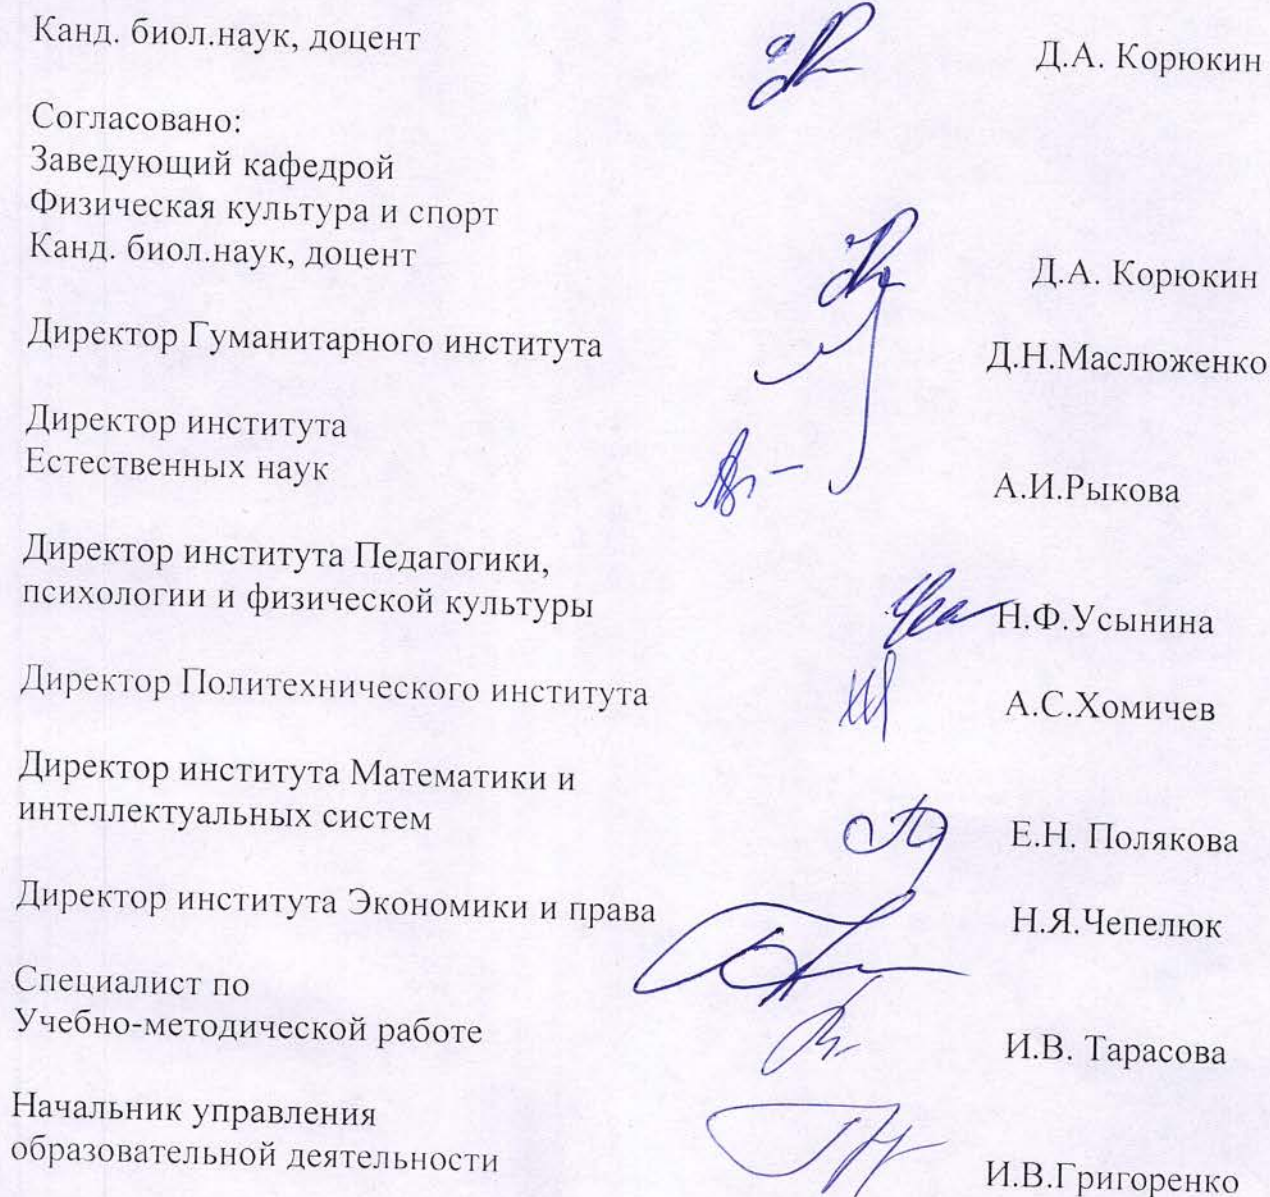 Канд. биол.наук, доцент Д.А. Корюкин
Согласовано:
Заведующий кафедрой
Физическая культура и спорт
Канд. биол.наук, доцент Д.А. Корюкин
Директор Гуманитарного института Д.Н.Маслюженко
Директор института
Естественных наук А.И.Рыкова
Директор института Педагогики,
психологии и физической культуры Н.Ф.Усынина
Директор Политехнического института А.С.Хомичев
Директор института Математики и
интеллектуальных систем Е.Н. Полякова
Директор института Экономики и права Н.Я.Чепелюк
Специалист по
Учебно-методической работе И.В. Тарасова
Начальник управления
образовательной деятельности И.В.Григоренко